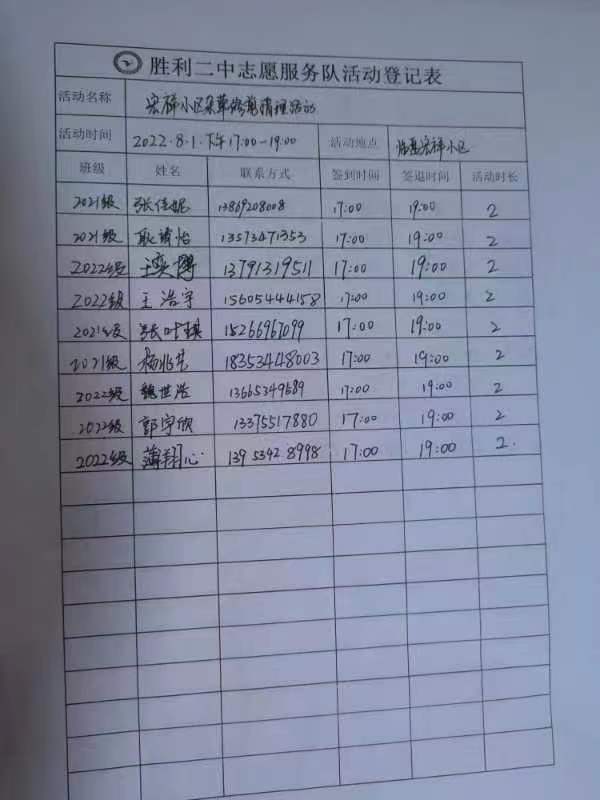 胜利二中志愿服务队活动登记表
活动名称 宏祥小区杂草垃圾清理活动
活动时间 2022.8.1.下午17:00-19:00 活动地点 宏祥小区
班级 姓名 联系方式 签到时间 签退时间 活动时长
2021级 张佳妮 13869208008 17:00 19:00 2
2021级 耿靖怡 13573471353 17:00 19:00 2
2022级 王奕博 13791319511 17:00 19:00 2
2022级 王浩宇 15605444158 17:00 19:00 2
2021级 张叶琪 15266967099 17:00 19:00 2
2021级 杨兆艺 18353448003 17:00 19:00 2
2022级 魏世浩 13665349689 17:00 19:00 2
2022级 郭宇欣 13375517880 17:00 19:00 2
2022级 蒲翔心 139 5342 8998 17:00 19:00 2.